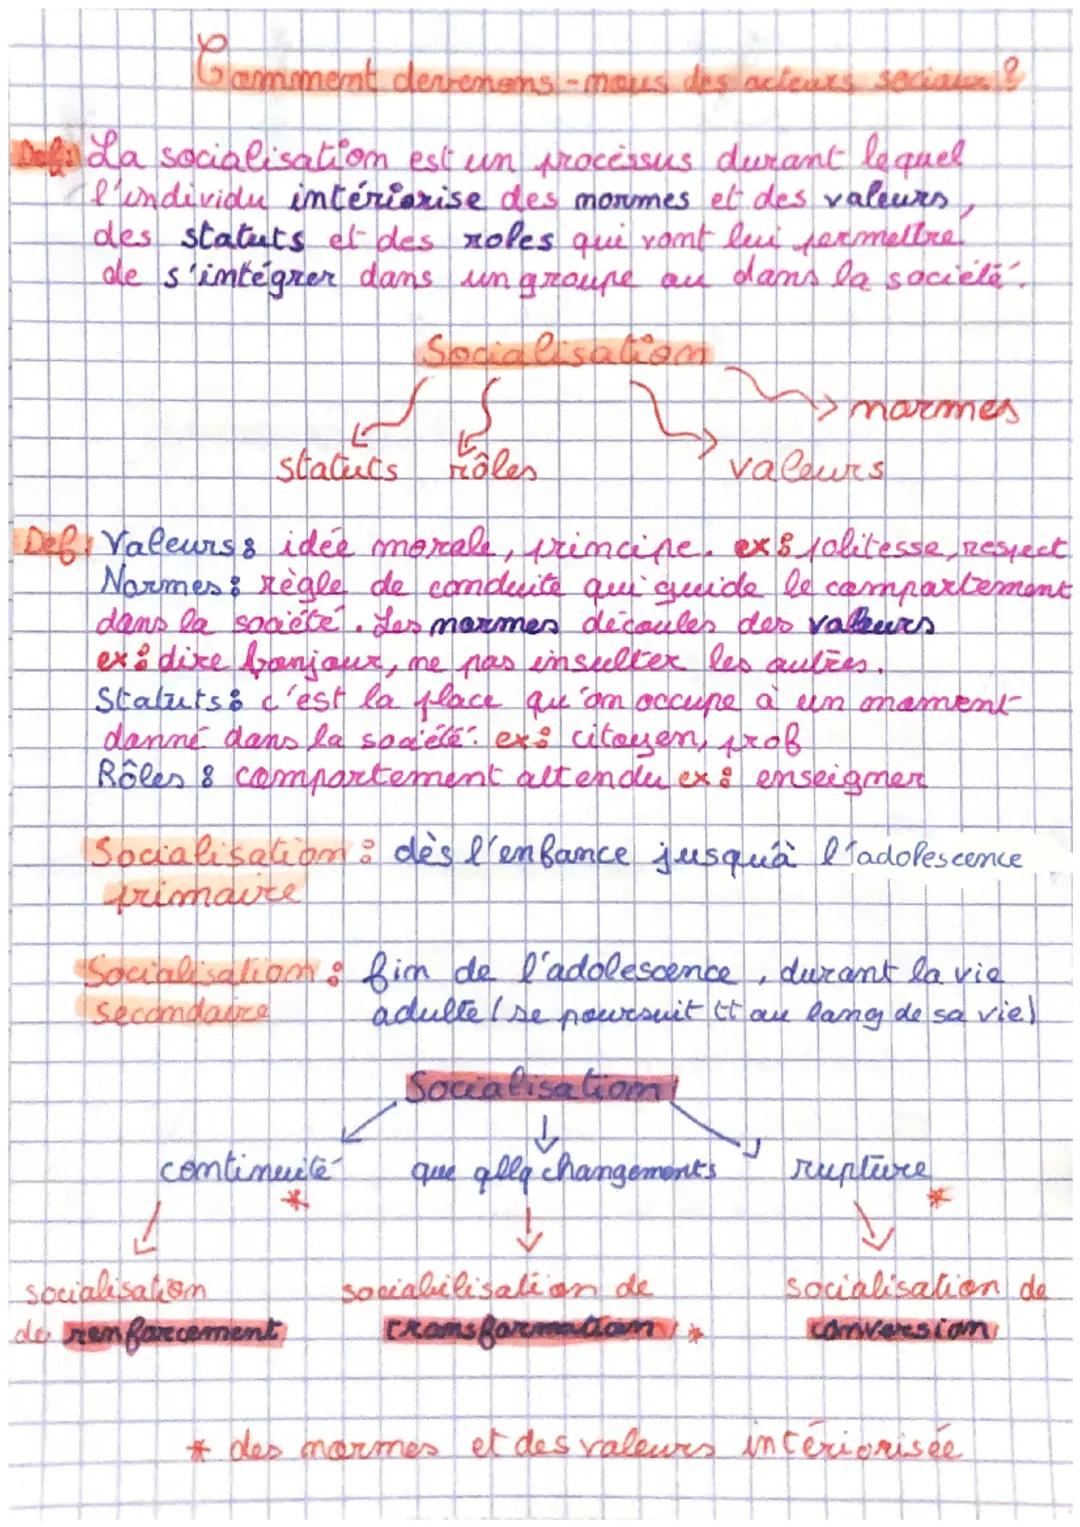 Comment devenons-nous des acteurs sociaux ?
Def: La socialisation est un processus durant lequel
l'individu intériorise des normes et des valeurs,
des statuts et des roles qui vont lui permettre
de s'intégrer dans un groupe ou dans la société.
Socialisation
normes
statuts rôles valeurs
Def: Valeurs: idée morale, principe. ex: politesse, respect
Normes: règle de conduite qui guide le comportement
dans la société. Les normes découles des valeurs
ex: dire bonjour, ne pas insulter les autres.
Statuts: c'est la place qu'on occupe à un moment
donné dans la société. ex: citoyen, prof
Rôles: comportement attendu ex: enseigner
Socialisation: dès l'enfance jusqu'à l'adolescence
primaire
Socialisation: fin de l'adolescence, durant la vie
secondaire adulte (se poursuit tt au long de sa vie)
Socialisation
continuité que qllq changements rupture
* *
socialisation socialilisation de socialisation de
de renforcement transformation * conversion
* des normes et des valeurs intériorisée